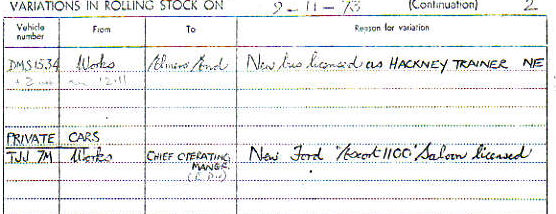 VARIATIONS IN ROLLING STOCK ON 9-11-73 (Continuation) 2
Vehicle number From To Reason for variation
DMS1534 Works Elmers End New bus licensed as HACKNEY TRAINER NE
12.11
PRIVATE CARS
TJJ 7M Works CHIEF OPERATING New Ford "Escort 1100" Saloon licensed
MANGR.